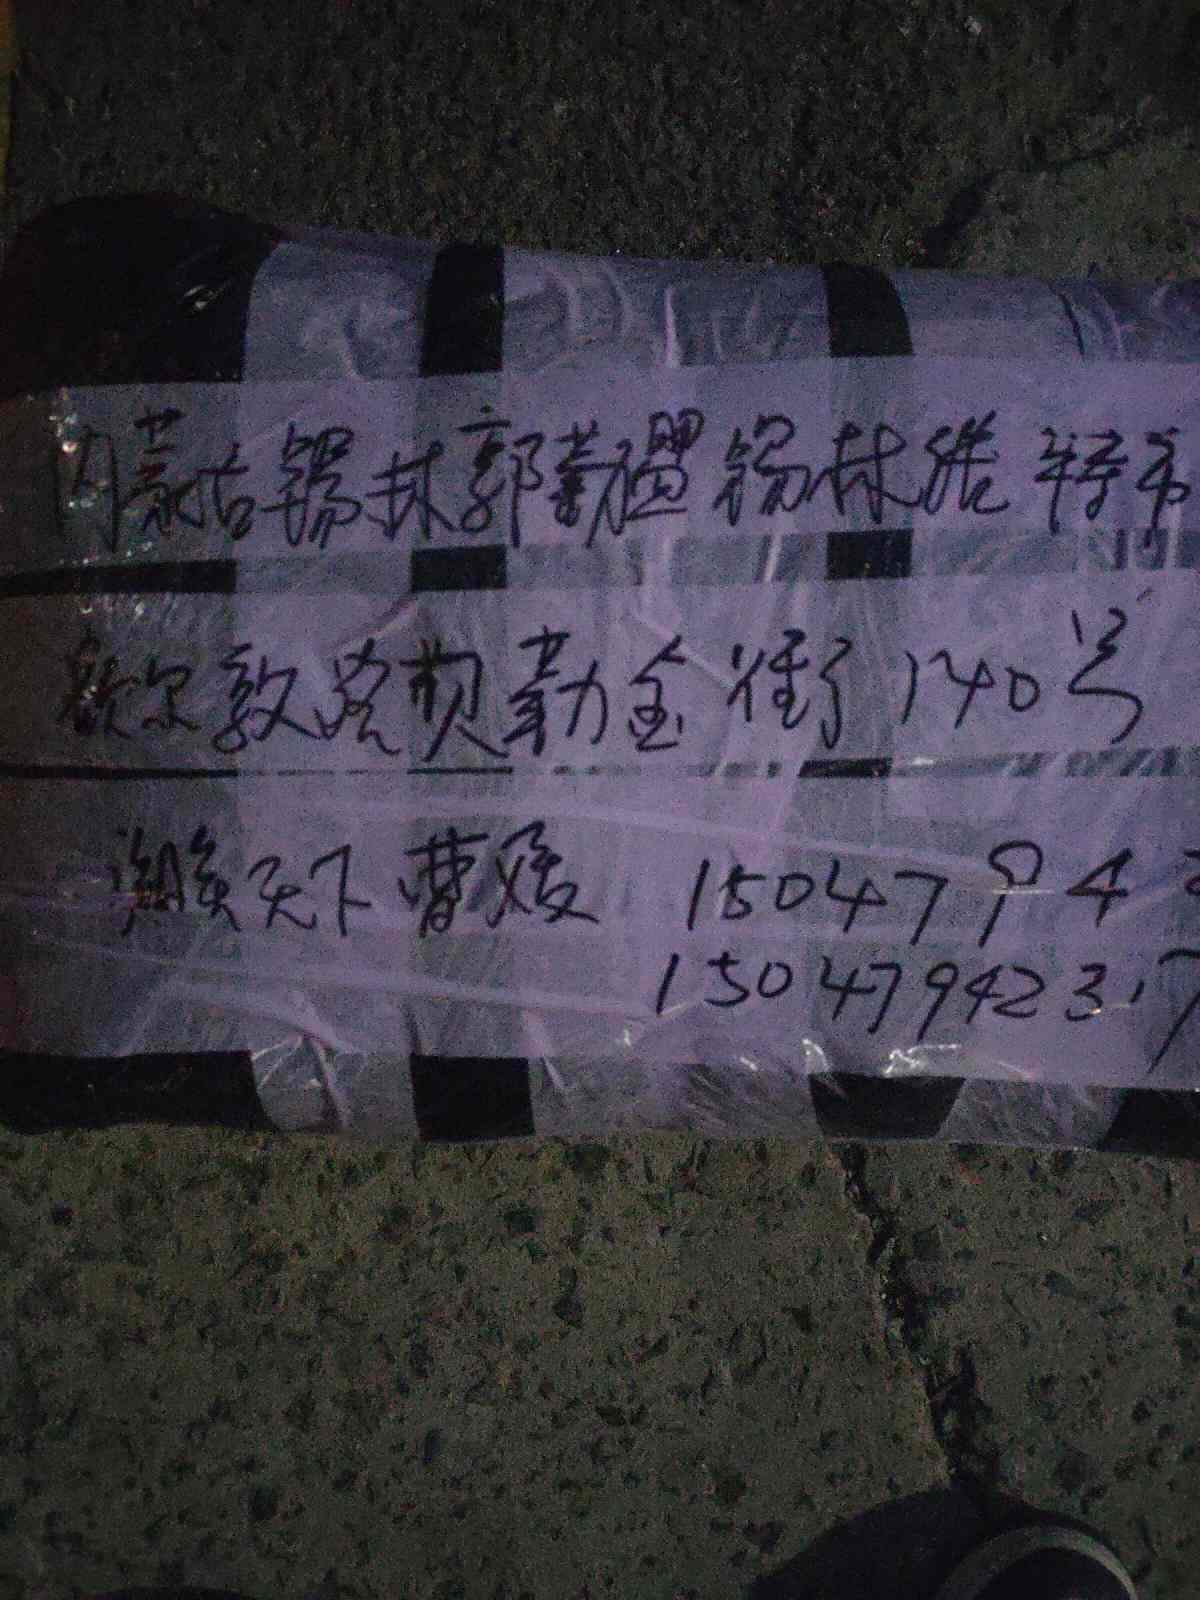 内蒙古锡林郭勒盟锡林浩特市
额尔敦路贝勒金街140号
潮美天下 曹媛 15047942
15047942317